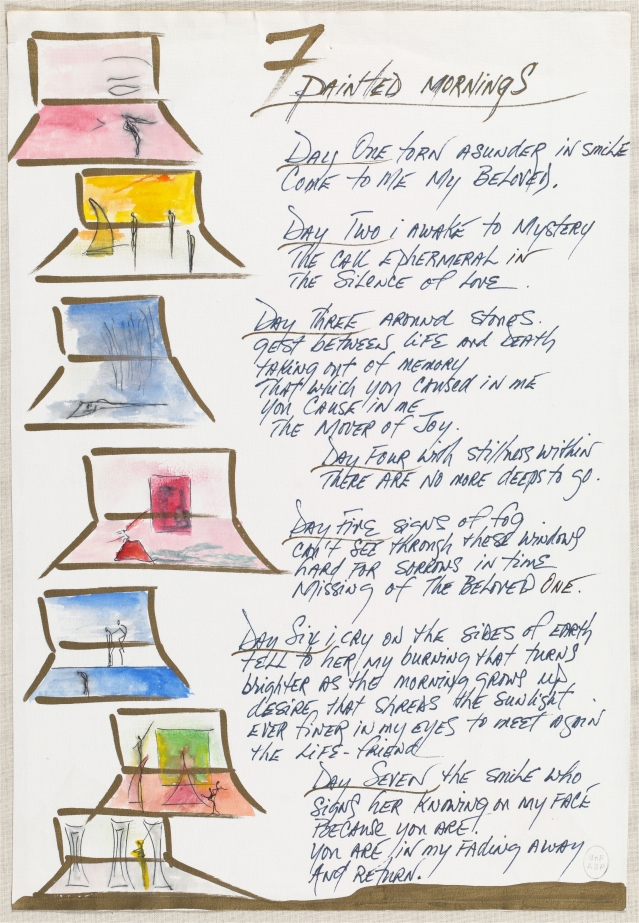 7
PAINTED MORNINGS
DAY ONE TORN ASUNDER IN SMILE
COME TO ME MY BELOVED.
DAY TWO i AWAKE TO MYSTERY
THE CALL EPHERMERAL IN
THE SILENCE OF LOVE.
DAY THREE AROUND STONES.
GETST BETWEEN LIFE AND DEATH
TAKING OUT OF MEMORY
THAT WHICH YOU CAUSED IN ME
YOU CAUSE IN ME
THE MOVER OF JOY.
DAY FOUR with STILLNESS WITHIN
THERE ARE NO MORE DEEPS TO GO.
DAY FIVE SIGNS OF FOG
CAN'T SEE THROUGH THESE WINDOWS
HARD FOR SORROWS IN TIME
MISSING OF THE BELOVED ONE.
DAY SIX i CRY ON THE SIDES OF EARTH
TELL TO HER MY BURNING THAT TURNS
BRIGHTER AS THE MORNING GROWS UP
DESIRE, THAT SHREDS THE SUNLIGHT
EVER FINER IN MY EYES TO MEET AGAIN
THE LIFE-FRIEND
DAY SEVEN THE SMILE WHO
SIGNS HER KNOWING ON MY FACE
BECAUSE YOU ARE.
YOU ARE IN MY FADING AWAY
AND RETURN.